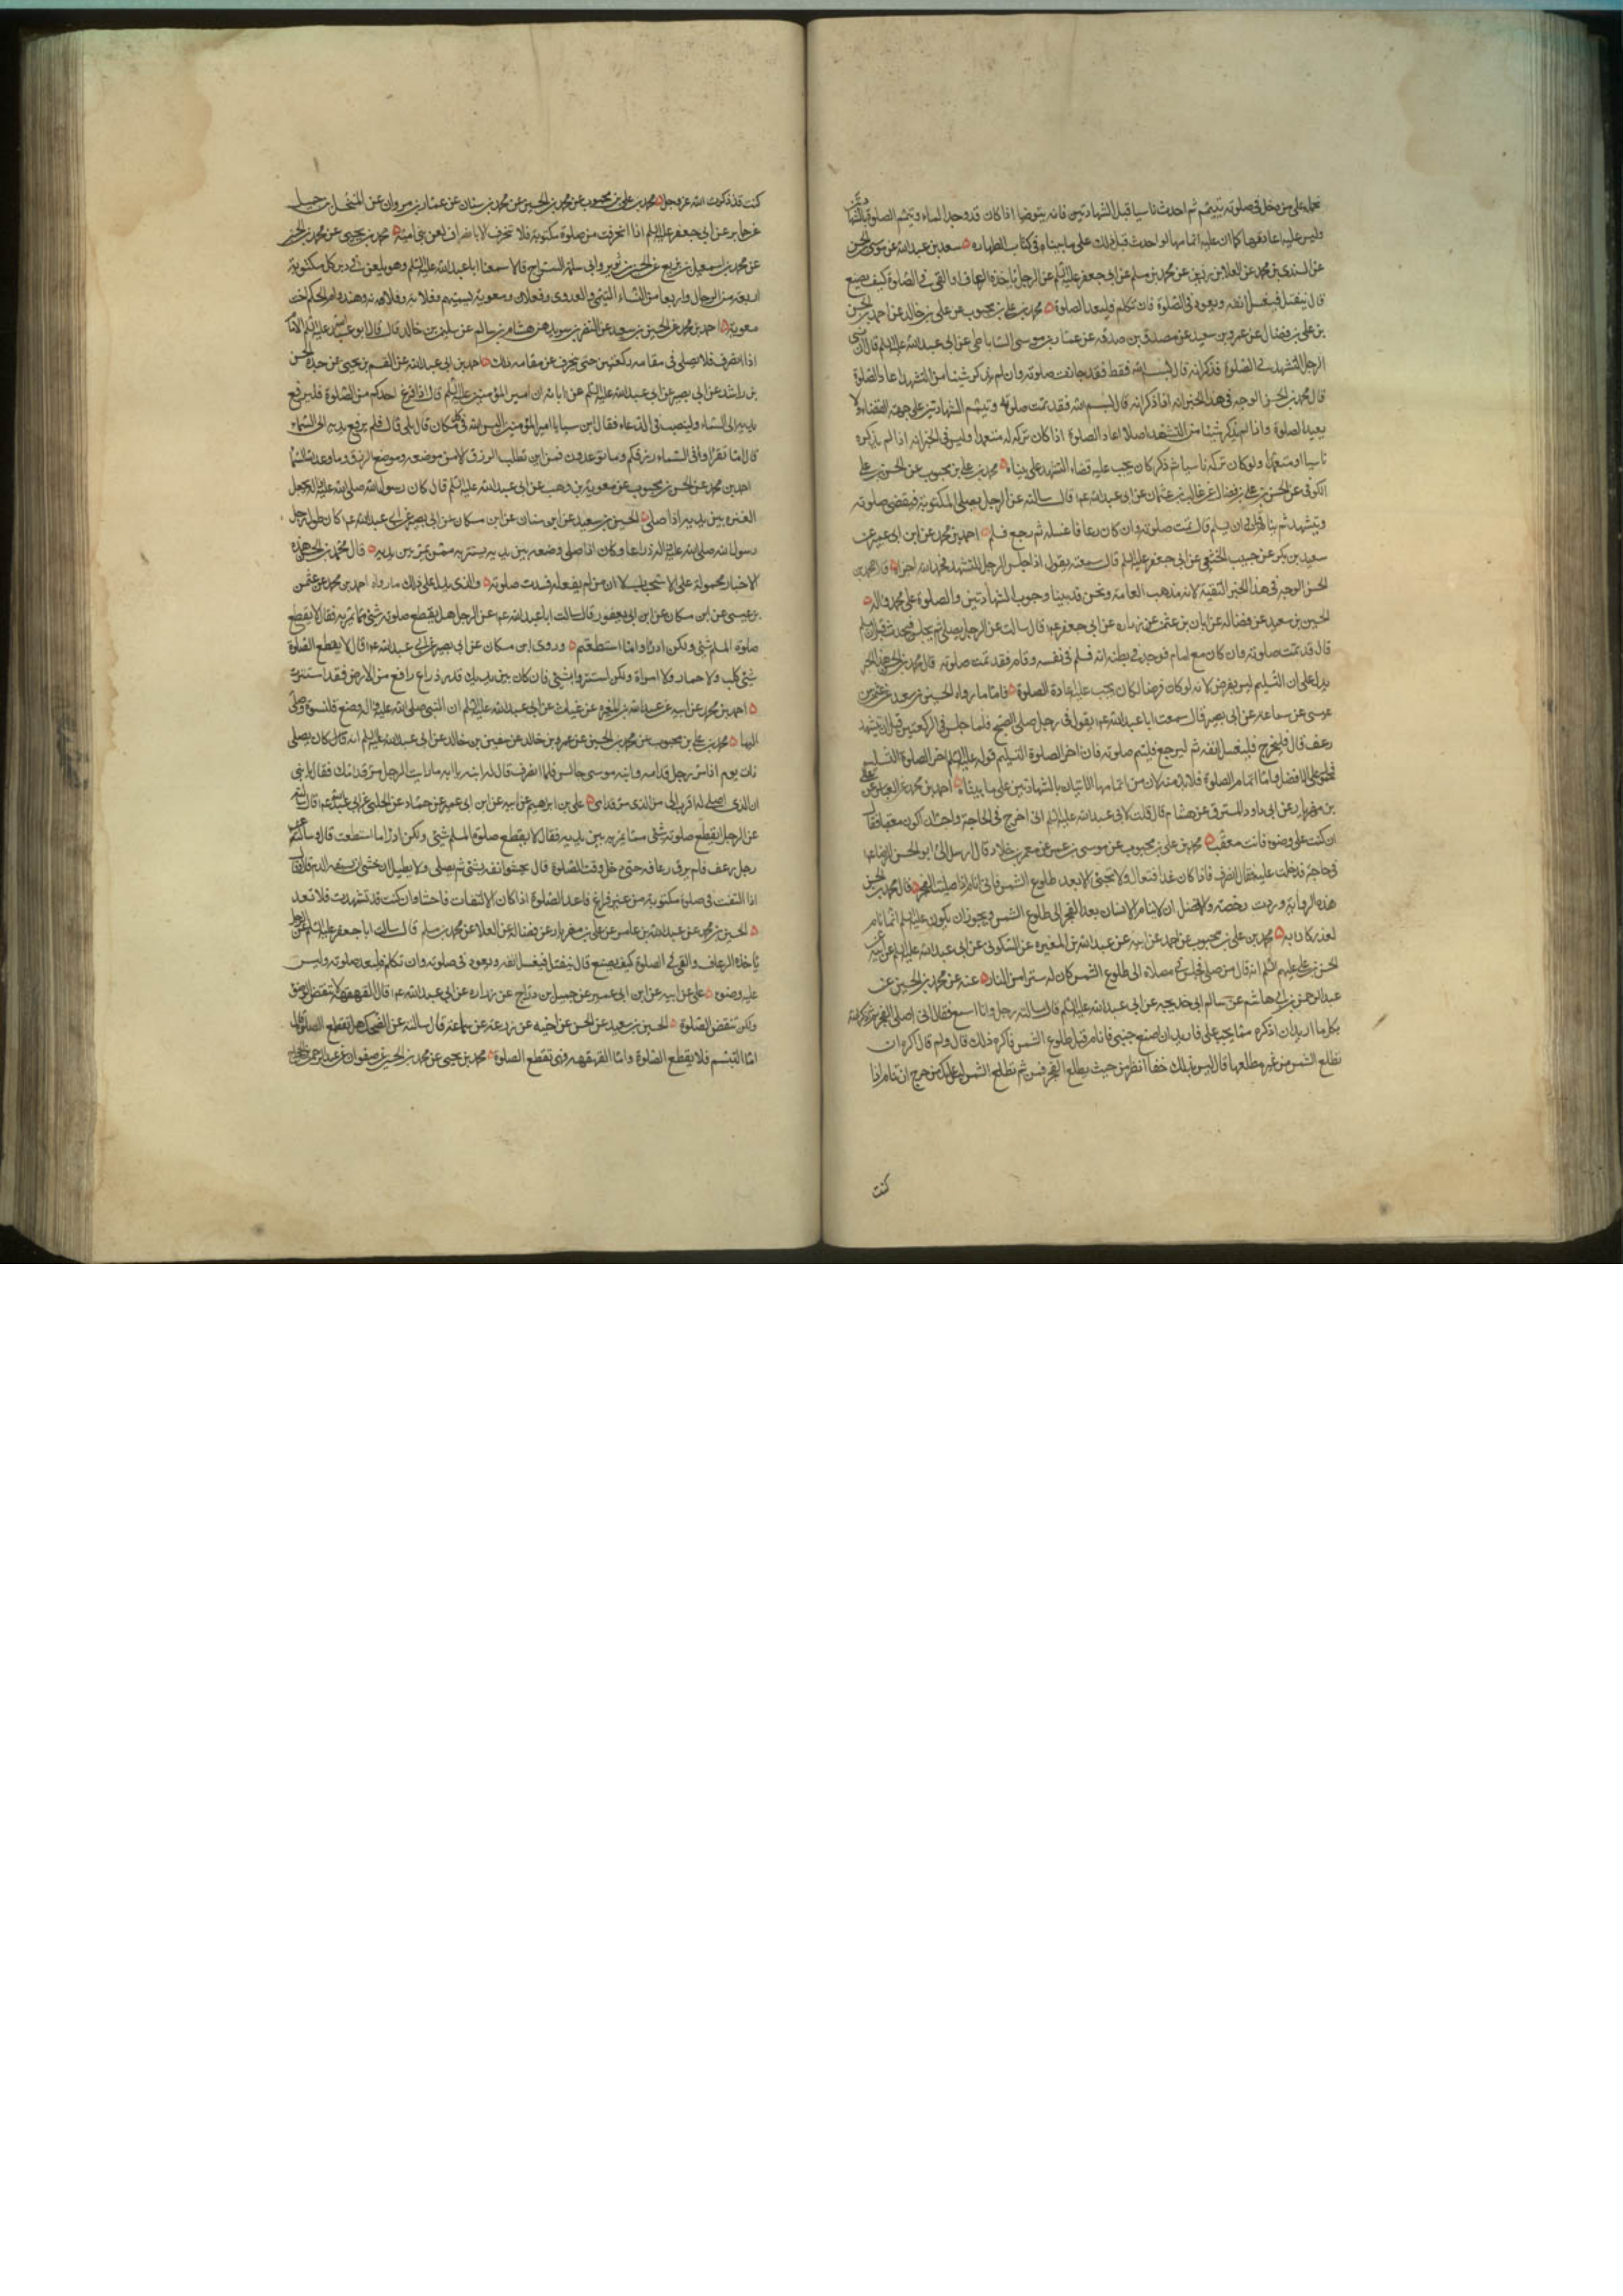 نحمله على من دخل في صلوته بتيمم ثم احدث ناسيا قبل الشهادتين فانه يتوضا اذا كان قد وجد الماء ويتمم الصلوة
وليس عليه اعادتها كما ان عليه اتمامها لو احدث قبل ذلك على ما بيناه في كتاب الطهارة سعد بن عبدالله عن موسى بن الحسن
عن السندي بن محمد عن العلا بن رزين عن محمد بن مسلم عن ابي جعفر عليه السلم عن الرجل ياخذه الرعاف او القي في الصلوة كيف يصنع
قال ينفتل فيغسل انفه ويعود في الصلوة فان تكلم فليعد الصلوة محمد بن علي بن محبوب عن علي بن خالد عن احمد بن الحسن
بن علي بن فضال عن عمرو بن سعيد عن مصدق بن صدقه عن عمار بن موسى الساباطي عن ابي عبدالله عليه السلم قال ان نسي
الرجل التشهد في الصلوة فذكر انه قال بسم الله فقط فقد جازت صلوته وان لم يذكر شيئا من التشهد اعاد الصلوة
قال محمد بن الحسن الوجه في هذا الخبر انه اذا ذكر انه قال بسم الله فقد تمت صلوته ويتمم الشهادتين على جهة القضاء ولا
يعيد الصلوة واذا لم يذكر شيئا من التشهد اصلا اعاد الصلوة اذا كان تركه له متعمدا وليس في الخبر انه اذا لم يذكره
ناسيا او متعمدا ولو كان تركه ناسيا ثم ذكر كان يجب عليه قضاء التشهد على ما بيناه محمد بن علي بن محبوب عن الحسن بن علي
الكوفي عن الحسن بن علي بن فضال عن غالب بن عثمان عن ابي عبدالله ع قال سالته عن الرجل يصلي المكتوبة فيقضي صلوته
ويتشهد ثم ينام قبل ان يسلم قال تمت صلوته وان كان رعافا غسله ثم رجع فسلم احمد بن محمد عن ابن ابي عمير عن
سعيد بن بكر عن حبيب الخثعمي عن ابي جعفر عليه السلم قال سمعته يقول اذا جلس الرجل للتشهد فحمد الله اجزاه قال محمد بن
الحسن الوجه في هذا الخبر التقية لانه مذهب العامة ونحن قد بينا وجوب الشهادتين والصلوة على محمد واله
الحسين بن سعيد عن فضاله عن ابان بن عثمن عن زراره عن ابي جعفر ع قال سالت عن الرجل يصلي ثم يجلس فيحدث قبل ان يسلم
قال قد تمت صلوته وان كان مع امام فوجد في بطنه اذى فسلم في نفسه وقام فقد تمت صلوته قال محمد بن الحسن هذا الخبر
يدل على ان التسليم ليس بفرض لانه لو كان فرضا لكان يجب عليه اعادة الصلوة فاما ما رواه الحسين بن سعيد عن عثمن بن
عيسى عن سماعة عن ابي بصير قال سمعت ابا عبدالله ع يقول في رجل صلى الصبح فلما جلس في الركعتين قبل ان يتشهد
رعف قال فليخرج فليغسل انفه ثم ليرجع فليتم صلوته فان اخر الصلوة التسليم قوله عليه السلم اخر الصلوة التسليم
فمحمول على الافضل واما اتمام الصلوة فلا بد منه لان من اتمامها الاتيان بالشهادتين على ما بيناه احمد بن محمد عن العباس عن علي
بن مهزيار عن ابي داود المسترق عن هشام قال قلت لابي عبدالله عليه السلم اني اخرج في الحاجة واحب ان اكون معقبا فقال
ان كنت على وضوء فانت معقب محمد بن علي بن محبوب عن موسى بن عمر عن معمر بن خلاد قال ارسل الي ابو الحسن الرضا ع
في حاجة فدخلت عليه فقال انصرف فاذا كان غدا فتعال ولا تجئ الا بعد طلوع الشمس فاني انام اذا صليت الفجر قال محمد بن الحسن
هذه الرواية وردت رخصة والافضل ان لا ينام الانسان بعد الفجر الى طلوع الشمس ويجوز ان يكون عليه السلم انما نام
لعذر كان به محمد بن علي بن محبوب عن احمد عن ابيه عن عبدالله بن المغيره عن السكوني عن ابي عبدالله عليه السلم عن ابيه عن
الحسن بن علي عليهم السلم انه قال من صلى فجلس في مصلاه الى طلوع الشمس كان له سترا من النار عنه عن محمد بن الحسين عن
عبدالرحمن بن ابي هاشم عن سالم ابي خديجه عن ابي عبدالله عليه السلم قال ساله رجل وانا اسمع فقال اني اصلي الفجر ثم اذكر الله
بكل ما اريد ان اذكره مما يجب علي فاريد ان اضع جنبي فانام قبل طلوع الشمس فاكره ذلك قال ولم قال اكره ان
تطلع الشمس من غير مطلعها قال ليس بذلك خفاء انظر من حيث يطلع الفجر فمن ثم تطلع الشمس ليس عليك من حرج ان تنام اذا
كنت
كنت قد ذكرت الله عز وجل محمد بن علي بن محبوب عن محمد بن الحسين عن محمد بن سنان عن عمار بن مروان عن المنخل بن جميل
عن جابر عن ابي جعفر عليه السلم اذا انحرفت من صلوة مكتوبة فلا تنحرف الا بانصراف لعن بني امية محمد بن يحيى عن محمد بن الحسين
عن محمد بن اسمعيل بن بزيع عن الحسين بن ثوير وابي سلمة السراج قالا سمعنا ابا عبدالله عليه السلم وهو يلعن في دبر كل مكتوبة
اربعه من الرجال واربعا من النساء التيمي والعدوي وفعلان ومعوية يسميهم وفلانه وفلانه وهند وام الحكم اخت
معوية احمد بن محمد عن الحسين بن سعيد عن النضر بن سويد عن هشام بن سالم عن سليمن بن خالد قال قال ابو عبدالله عليه السلم الامام
اذا انصرف فلا يصلي في مقامه ركعتين حتى ينحرف عن مقامه ذلك احمد بن ابي عبدالله عن القسم بن يحيى عن جده الحسن
بن راشد عن ابي بصير عن ابي عبدالله عليه السلم عن ابائه ان امير المؤمنين عليه السلم قال اذا فرغ احدكم من الصلوة فليرفع
يديه الى السماء ولينصب في الدعاء فقال ابن سبا يا امير المؤمنين اليس الله في كل مكان قال بلى قال فلم يرفع يديه الى السماء
قال اما تقرا وفي السماء رزقكم وما توعدون فمن اين تطلب الرزق الا من موضعه وموضع الرزق وما وعد الله السما
احمد بن محمد عن الحسن بن محبوب عن معوية بن وهب عن ابي عبدالله عليه السلم قال كان رسول الله صلى الله عليه واله يجعل
العنزه بين يديه اذا صلى الحسين بن سعيد عن ابن سنان عن ابن مسكان عن ابي بصير عن ابي عبدالله ع كان طول رحل
رسول الله صلى الله عليه واله ذراعا وكان اذا صلى وضعه بين يديه يستتر به ممن يمر بين يديه قال محمد بن الحسن هذه
الاخبار محمولة على الاستحباب لا ان من لم يفعله فسدت صلوته والذي يدل على ذلك ما رواه احمد بن محمد عن عثمن
بن عيسى عن ابن مسكان عن ابن ابي يعفور قال سالت ابا عبدالله ع عن الرجل هل يقطع صلوته شئ مما يمر به فقال لا يقطع
صلوة المسلم شئ ولكن ادرؤا ما استطعتم وروى ابن مسكان عن ابي بصير عن ابي عبدالله ع قال لا يقطع الصلوة
شئ كلب ولا حمار ولا امراة ولكن استتروا بشئ فان كان بين يديك قدر ذراع رافع من الارض فقد استترت
احمد بن محمد عن ابيه عن عبدالله بن المغيره عن غياث عن ابي عبدالله عليه السلم ان النبي صلى الله عليه واله وضع قلنسوة وصلى
اليها محمد بن علي بن محبوب عن محمد بن الحسين عن عمرو بن خالد عن سفين بن خالد عن ابي عبدالله عليه السلم انه قال كان يصلي
ذات يوم اذ مر رجل قدامه وابنه موسى جالس فلما انصرف قال له ابنه يا ابه ما رايت الرجل مر قدامك فقال يا بني
ان الذي اصلي له اقرب الي من الذي مر قدامي علي بن ابرهيم عن ابيه عن ابن ابي عمير عن حماد عن الحلبي عن ابي عبدالله ع قال سالته
عن الرجل ايقطع صلوته شئ مما يمر به بين يديه فقال لا يقطع صلوة المسلم شئ ولكن ادرا ما استطعت قال وسالته عن
رجل رعف فلم يرق رعافه حتى دخل وقت الصلوة قال يحشو انفه بشئ ثم يصلي ولا يطيل ان خشي ان يسبقه الدم قال وقال
اذا التفت في صلوة مكتوبة من غير فراغ فاعد الصلوة اذا كان الالتفات فاحشا وان كنت قد تشهدت فلا تعد
الحسين بن محمد عن عبدالله بن عامر عن علي بن مهزيار عن فضالة عن العلا عن محمد بن مسلم قال سالت ابا جعفر عليه السلم عن الرجل
ياخذه الرعاف والقي في الصلوة كيف يصنع قال ينفتل فيغسل انفه ويعود في صلوته وان تكلم فليعد صلوته وليس
عليه وضوء علي عن ابيه عن ابن ابي عمير عن جميل بن دراج عن زراره عن ابي عبدالله ع قال القهقهة لا تنقض الوضوء
ولكن تنقض الصلوة الحسين بن سعيد عن الحسن عن اخيه عن زرعة عن سماعة قال سالته عن الضحك هل يقطع الصلوة قال
اما التبسم فلا يقطع الصلوة واما القهقهه فهي تقطع الصلوة محمد بن يحيى عن محمد بن الحسين عن صفوان عن عبد الرحمن بن الحجاج